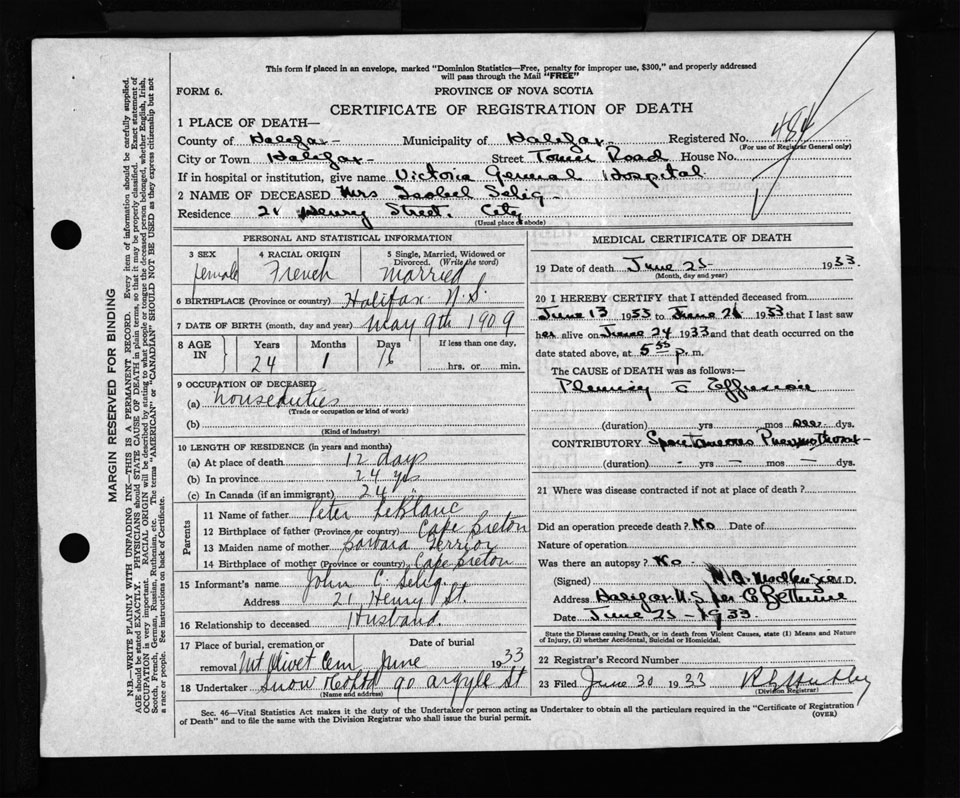 This form if placed in an envelope, marked "Dominion Statistics—Free, penalty for improper use, $300," and properly addressed
will pass through the Mail "FREE"
FORM 6.
PROVINCE OF NOVA SCOTIA
CERTIFICATE OF REGISTRATION OF DEATH
1 PLACE OF DEATH—
County of Halifax Municipality of Halifax Registered No. 484
(For use of Registrar General only)
City or Town Halifax Street Tower Road House No.
If in hospital or institution, give name Victoria General Hospital
2 NAME OF DECEASED Mrs Isobel Selig
Residence 21 Henry Street. City
(Usual place of abode)
PERSONAL AND STATISTICAL INFORMATION
3 SEX 4 RACIAL ORIGIN 5 Single, Married, Widowed or
Divorced. (Write the word)
female French married
6 BIRTHPLACE (Province or country) Halifax N.S.
7 DATE OF BIRTH (month, day and year) May 9th 1909
8 AGE IN Years Months Days If less than one day,
24 1 16 hrs. or min.
9 OCCUPATION OF DECEASED
(a) houseduties
(Trade or occupation or kind of work)
(b)
(Kind of industry)
10 LENGTH OF RESIDENCE (in years and months)
(a) At place of death 12 days
(b) In province 24 yrs
(c) In Canada (if an immigrant) 24 "
Parents
11 Name of father Peter LeBlanc
12 Birthplace of father (Province or country) Cape Breton
13 Maiden name of mother Barbara Gerrior
14 Birthplace of mother (Province or country) Cape Breton
15 Informant's name John C. Selig
Address 21 Henry St.
16 Relationship to deceased Husband.
17 Place of burial, cremation or Date of burial
removal Mt Olivet Cem June 1933
18 Undertaker Snow & Co Ltd 90 Argyle St
(Name and address)
MEDICAL CERTIFICATE OF DEATH
19 Date of death June 25 1933.
(Month, day and year)
20 I HEREBY CERTIFY that I attended deceased from
June 13 1933 to June 1933 that I last saw
her alive on June 24 1933 and that death occurred on
date stated above, at 5 55 p. m.
The CAUSE of DEATH was as follows:—
Pleurisy c Effusion
(duration) yrs mos dys.
CONTRIBUTORY Spontaneous Pneumothorax
(duration) - yrs - mos - dys.
21 Where was disease contracted if not at place of death?
Did an operation precede death? No Date of
Nature of operation
Was there an autopsy? No
(Signed) MacKenzie M.D.
Address Halifax N.S. per Bethune
Date June 25 1933.
State the Disease causing Death, or in death from Violent Causes, state (1) Means and Nature
of Injury, (2) whether Accidental, Suicidal or Homicidal.
22 Registrar's Record Number
23 Filed June 30 1933
(Division Registrar)
Sec. 46—Vital Statistics Act makes it the duty of the Undertaker or person acting as Undertaker to obtain all the particulars required in the "Certificate of Registration
of Death" and to file the same with the Division Registrar who shall issue the burial permit.
(OVER)
MARGIN RESERVED FOR BINDING
N.B.—WRITE PLAINLY WITH UNFADING INK—THIS IS A PERMANENT RECORD. Every item of information should be carefully supplied.
AGE should be stated EXACTLY. PHYSICIANS should STATE CAUSE OF DEATH in plain terms, so that it may be properly classified. Exact statement of
OCCUPATION is very important. RACIAL ORIGIN will be described by stating to what people or tongue the deceased person belonged, whether English, Irish,
Scotch, French, German, Russian, Ruthenian, etc. The terms "AMERICAN" or "CANADIAN" SHOULD NOT BE USED as they express citizenship but not
a race or people. See instructions on back of Certificate.